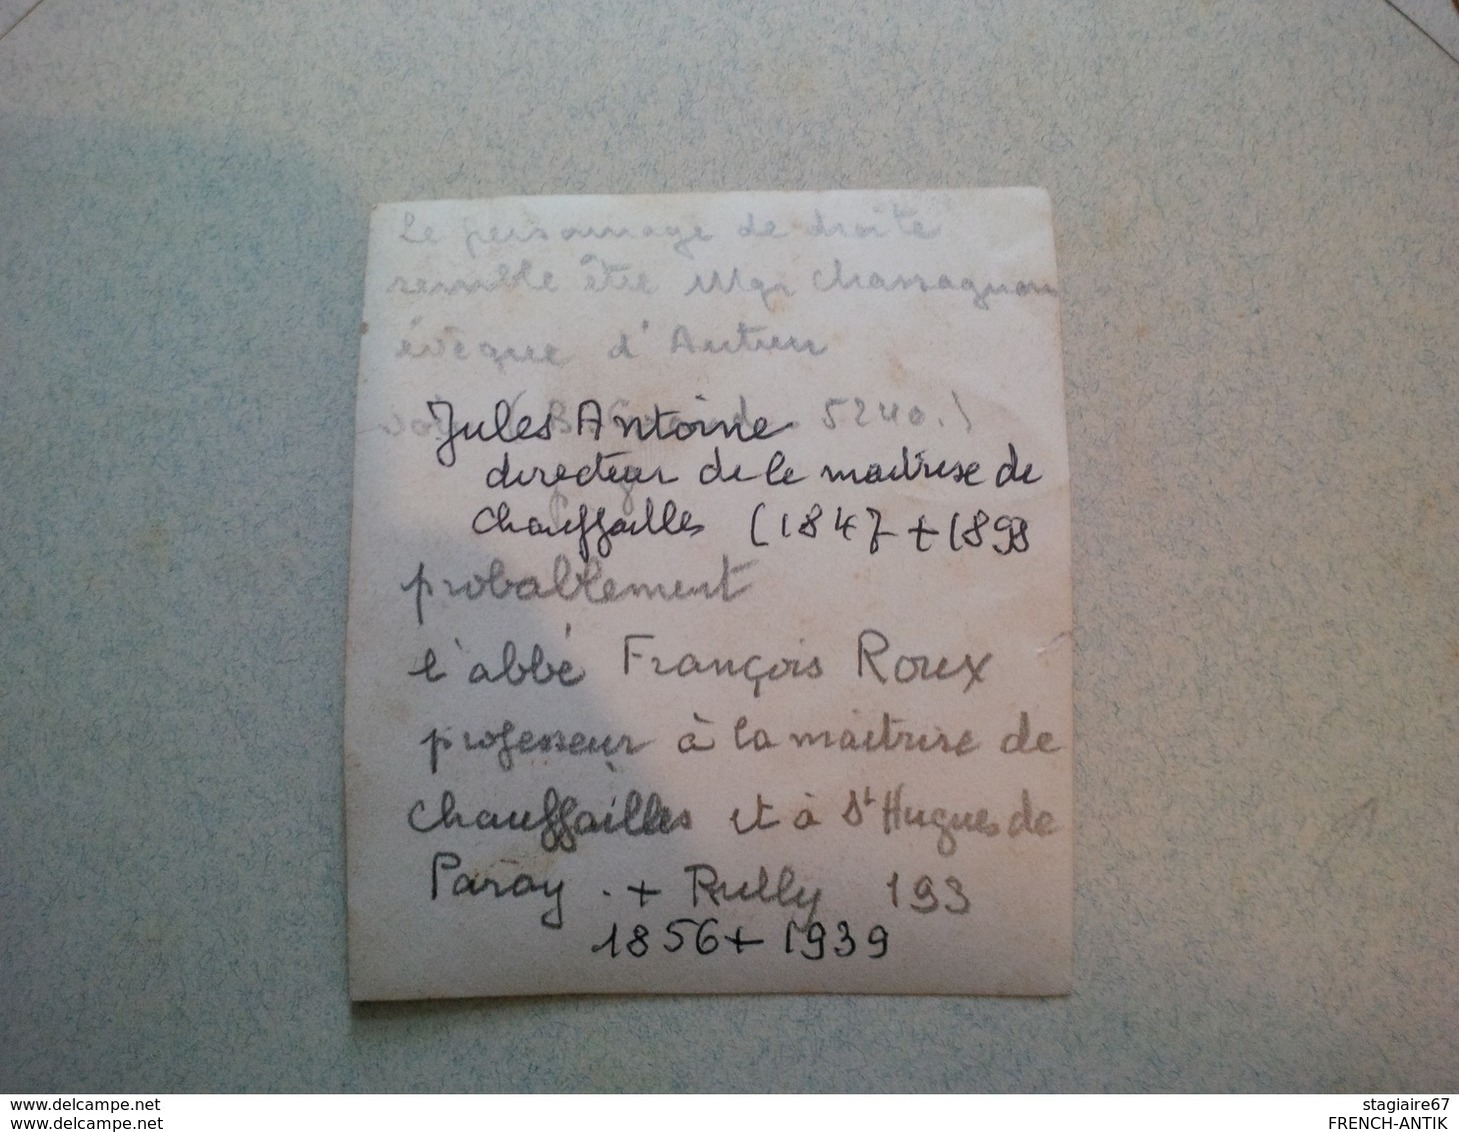 Le personnage de droite
semble être Mgr Chassagnon
évêque d'Autun
5240.)
Jules Antoine
directeur de le maitrise de
Chauffailles (1847 + 1893
probablement
l'abbé François Roux
professeur à la maitrise de
Chauffailles et à St Hugues de
Paray . + Rully 193
1856 + 1939
www.delcampe.net
www.delcampe.net
stagiaire67
FRENCH-ANTIK